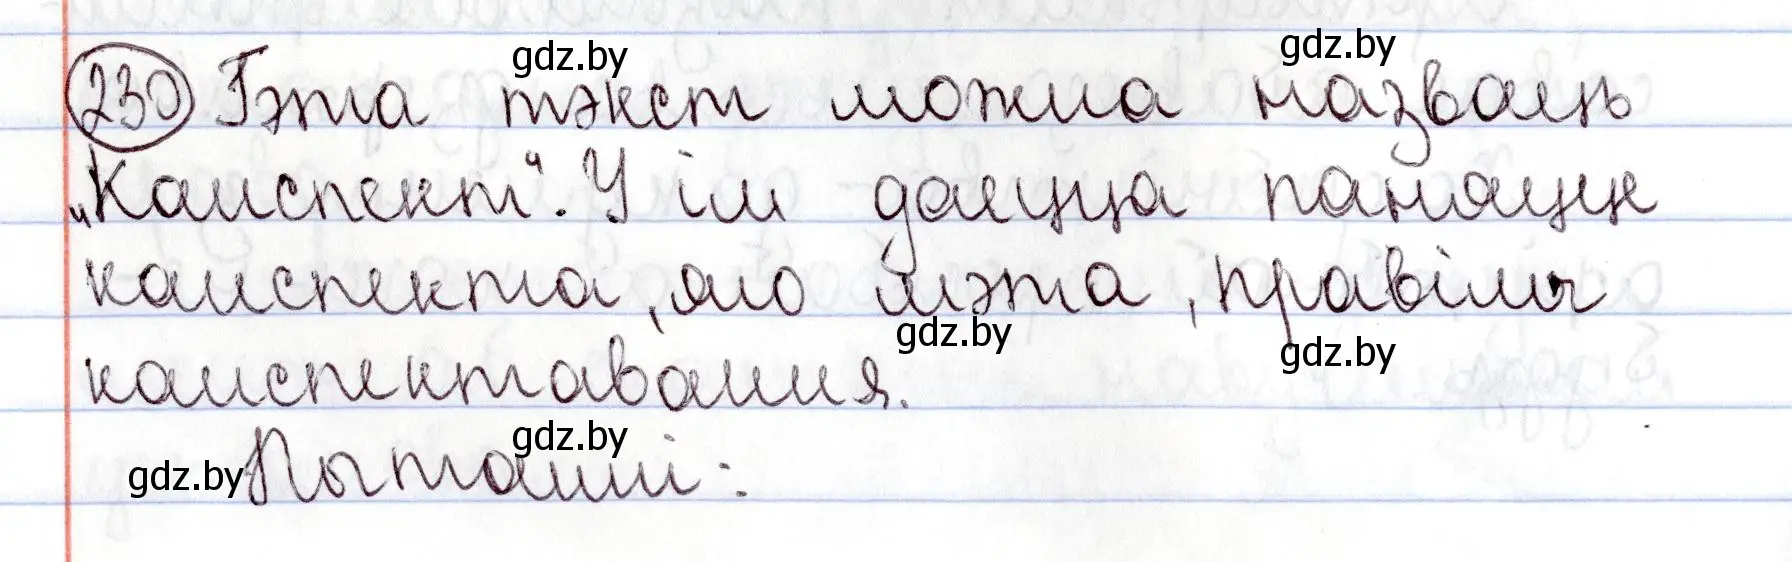 230 Гэта тэкст можна назваць
„Канспект“. У ім даецца паняцце
канспекта, яго мэта, правілы
канспектавання.
Пытанні:
gdz.by
gdz.by
gdz.by
gdz.by
gdz.by
gdz.by